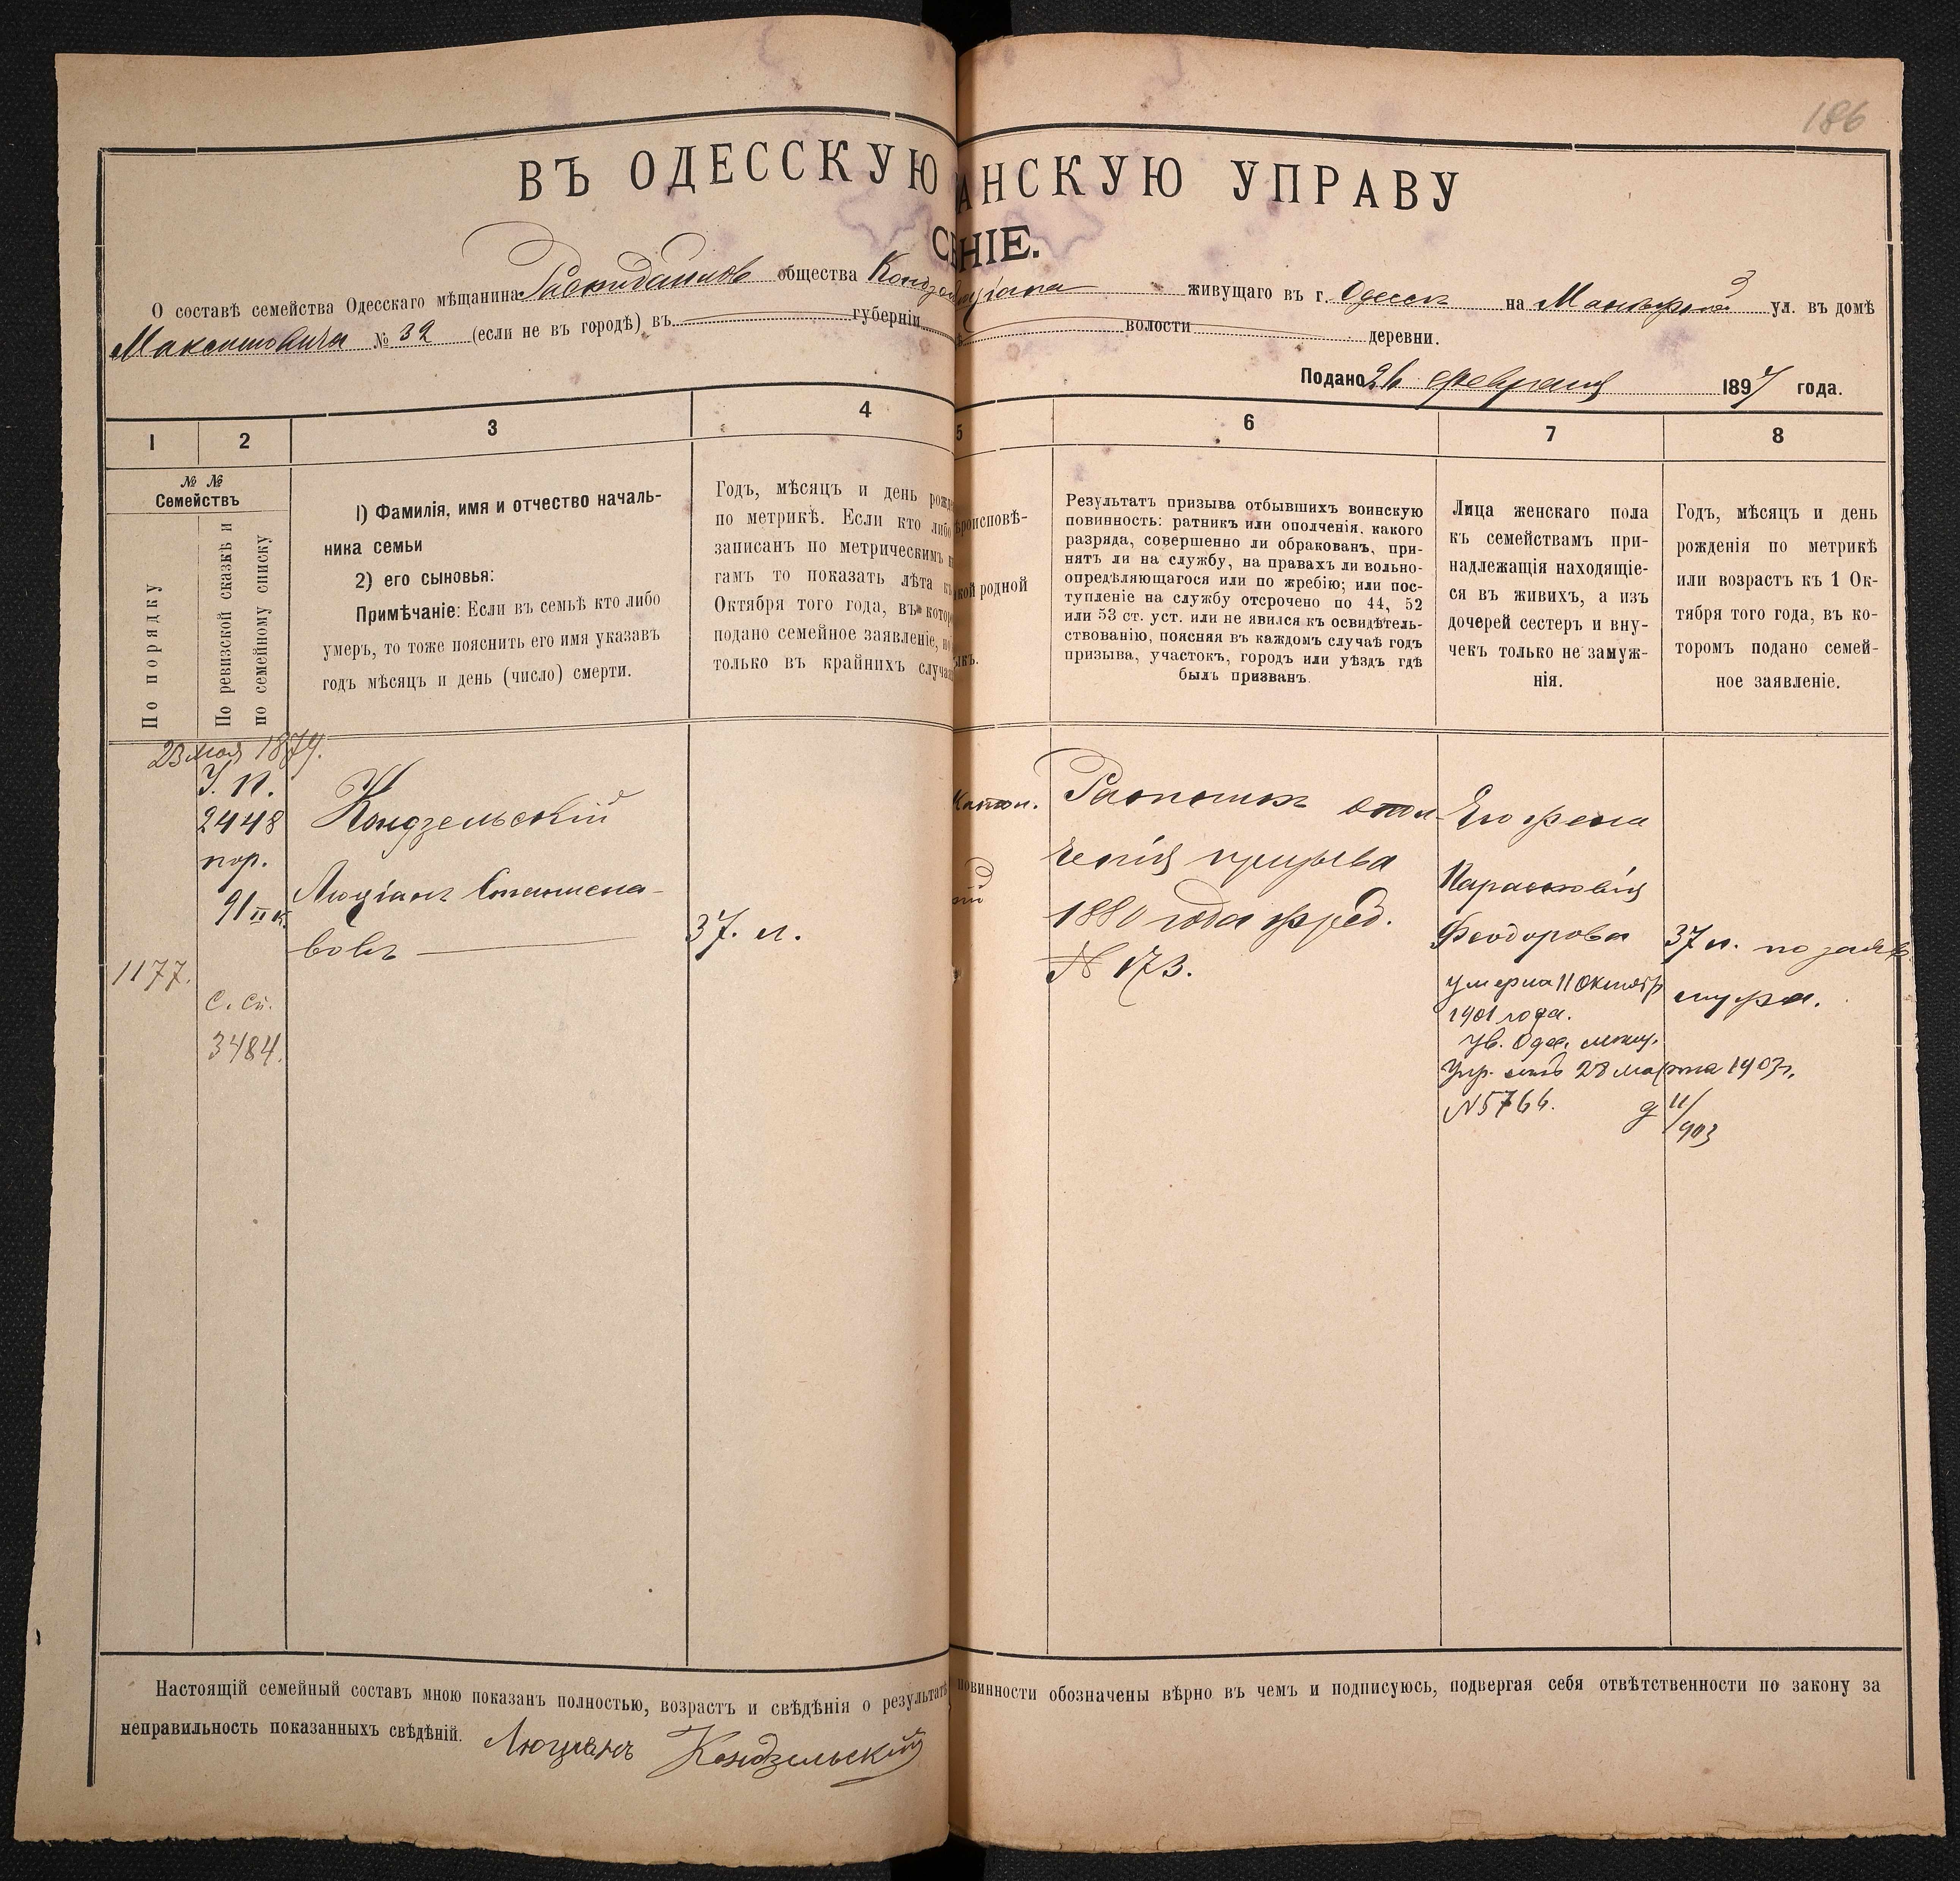 186
ВЪ ОДЕССКУЮ АНСКУЮ УПРАВУ
НІЕ.
О составѣ семейства Одесскаго мѣщанина общества живущаго въ г. Одессѣ на ул. въ домѣ
Максимовича № 32 (если не въ городѣ) въ губерніи волости деревни.
Подано 26 февраля 1897 года.
1 2 3 4 5 6 7 8
№ №
Семействъ
По порядку
По ревизской сказкѣ и
по семейному списку
1) Фамилія, имя и отчество началь-
ника семьи
2) его сыновья:
Примѣчаніе: Если въ семьѣ кто либо
умеръ, то тоже пояснить его имя указавъ
годъ мѣсяцъ и день (число) смерти.
Годъ, мѣсяцъ и день рожд
по метрикѣ. Если кто либо
записанъ по метрическимъ
гамъ то показать лѣта къ
Октября того года, въ котор
подано семейное заявленіе, но
только въ крайнихъ случа
ѣроисповѣ-
кой родной
ыкъ.
Результатъ призыва отбывшихъ воинскую
повинность: ратникъ или ополченія, какого
разряда, совершенно ли обракованъ, при-
нятъ ли на службу, на правахъ ли вольно-
опредѣляющагося или по жребію; или пос-
тупленіе на службу отсрочено по 44, 52
или 53 ст. уст. или не явился къ освидѣтель-
ствованію, поясняя въ каждомъ случаѣ годъ
призыва, участокъ, городъ или уѣздъ гдѣ
былъ призванъ.
Лица женскаго пола
къ семействамъ при-
надлежащія находящіе-
ся въ живихъ, а изъ
дочерей сестеръ и вну-
чекъ только не замуж-
нія.
Годъ, мѣсяцъ и день
рожденія по метрикѣ
или возрастъ къ 1 Ок-
тября того года, въ ко-
торомъ подано семей-
ное заявленіе.
23 мая 1879.
У. П.
2448
пор.
91 II к.
1177.
С. Сп.
3484.
Кондзельскій
Люціанъ Станисла-
вовъ
37. л.
Катол.
Ратникъ опол-
ченія призыва
1880 года жреб.
№ 173.
Его жена
Параскевія
Феодорова
умерла 11 Октябр
1901 года.
Ув. Одес. мѣщ.
Упр. отъ 28 марта 1903 г.
№ 5766.
37 л. по заявл.
мужа.
Настоящій семейный составъ мною показанъ полностью, возрастъ и свѣдѣнія о результатѣ повинности обозначены вѣрно въ чемъ и подписуюсь, подвергая себя отвѣтственности по закону за
неправильность показанныхъ свѣдѣній. Люціанъ Кондзельскій